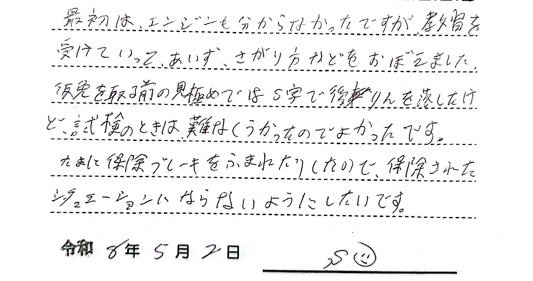 最初は、エンジンも分からなかったですが、教習を
受けていって、あいず、さがり方などをおぼえました。
仮免を取る前の見極めではS字で後りんを落したけ
ど、試検のときは、難なくうかったのでよかったです。
たまに保険ブレーキをふまれたりしたので、保険された
シチュエーションにならないようにしたいです。
令和 8年 5月 2日
S